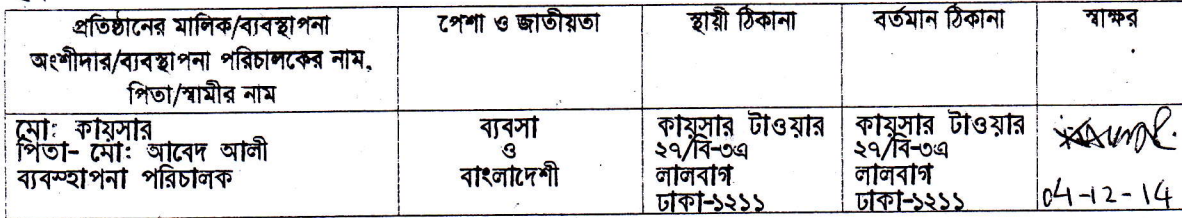 প্রতিষ্ঠানের মালিক/ব্যবস্থাপনা
অংশীদার/ব্যবস্থাপনা পরিচালকের নাম,
পিতা/স্বামীর নাম
পেশা ও জাতীয়তা
স্থায়ী ঠিকানা
বর্তমান ঠিকানা
স্বাক্ষর
মো: কায়সার
পিতা- মো: আবেদ আলী
ব্যবস্হাপনা পরিচালক
ব্যবসা
ও
বাংলাদেশী
কায়সার টাওয়ার
২৭/বি-৩এ
লালবাগ
ঢাকা-১২১১
কায়সার টাওয়ার
২৭/বি-৩এ
লালবাগ
ঢাকা-১২১১
04-12-14